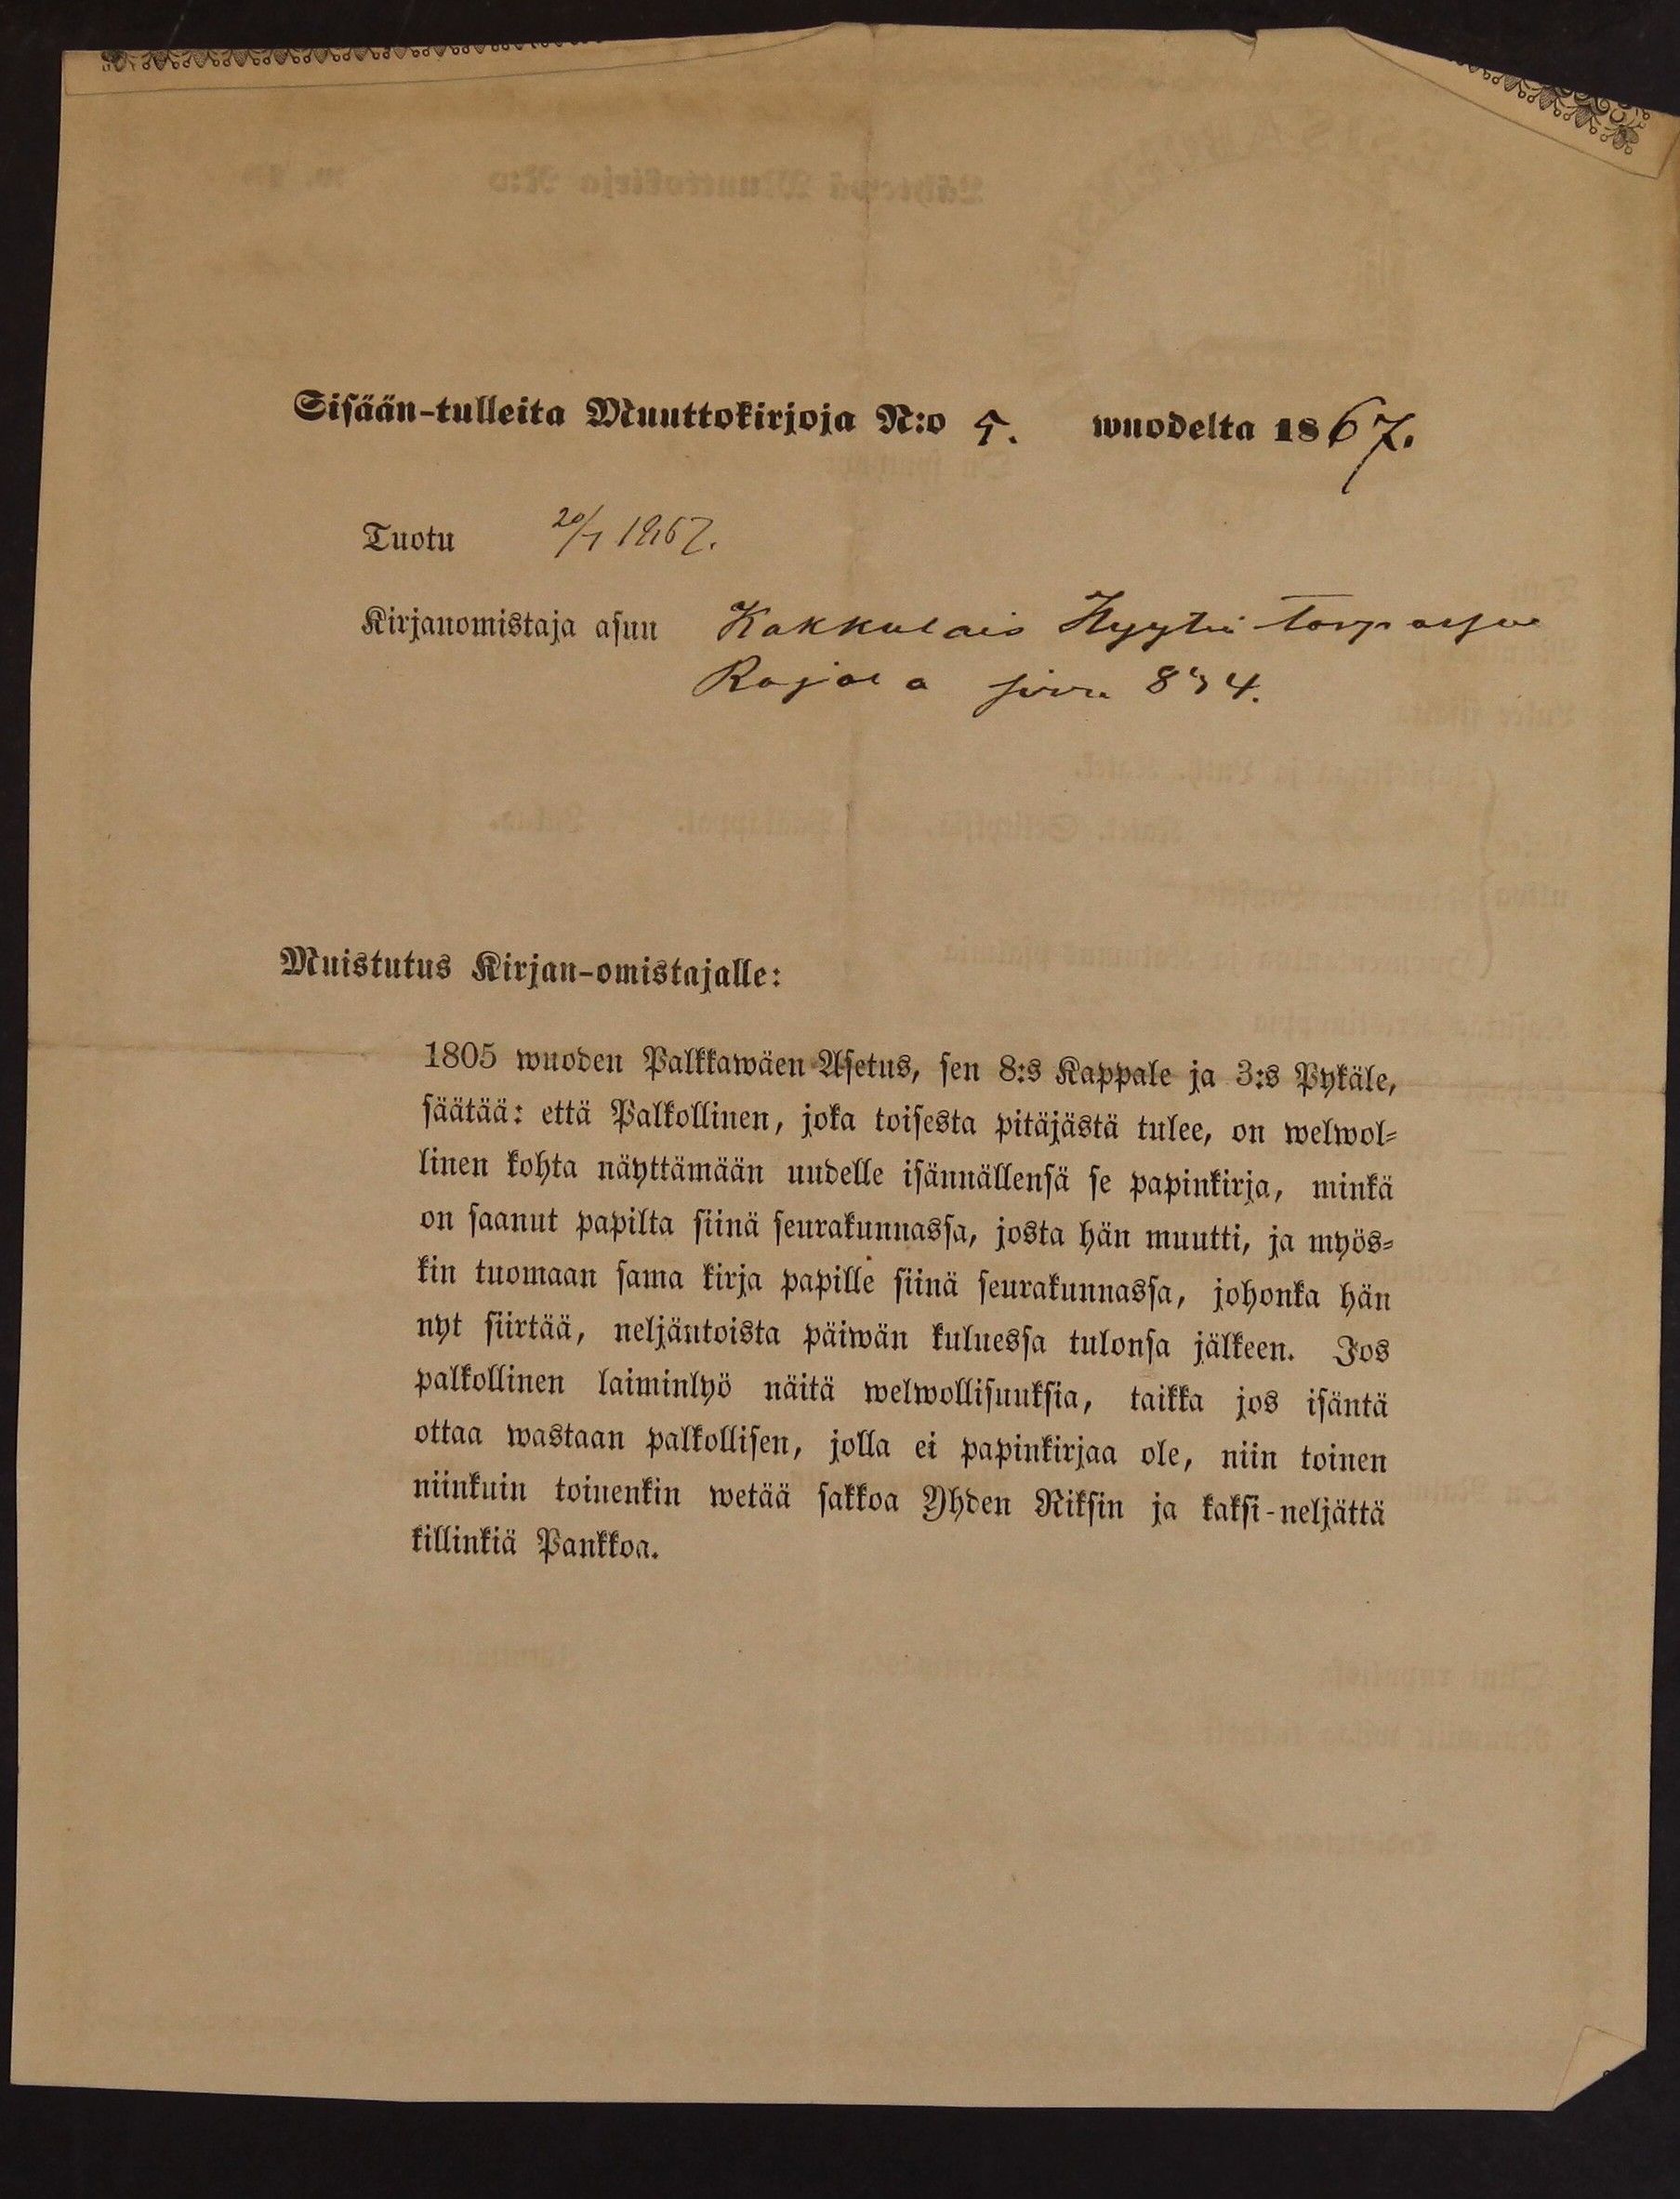 Sisään-tulleita Muuttokirjoja N:o 5. wuodelta 1867.
Tuotu 20/1 1867.
Kirjanomistaja asuu Kakkulais Hyytii
Rajala sivu 834.
Muistutus Kirjan-omistajalle:
1805 wuoden Palkkawäen Asetus, sen 8:s Kappale ja 3:s Pykäle,
säätää: että Palkollinen, joka toisesta pitäjästä tulee, on welwol-
linen kohta näyttämään uudelle isännällensä se papinkirja, minkä
on saanut papilta siinä seurakunnassa, josta hän muutti, ja myös-
kin tuomaan sama kirja papille siinä seurakunnassa, johonka hän
nyt siirtää, neljäntoista päiwän kuluessa tulonsa jälkeen. Jos
palkollinen laiminlyö näitä welwollisuuksia, taikka jos isäntä
ottaa wastaan palkollisen, jolla ei papinkirjaa ole, niin toinen
niinkuin toinenkin wetää sakkoa Yhden Riksin ja kaksi-neljättä
killinkiä Pankkoa.